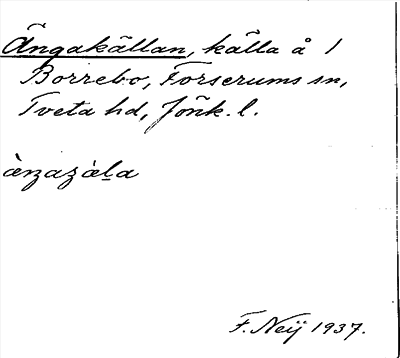 Ängakällan, källa å 1
Borrebo, Forserums sn,
Tveta hd, Jönk. l.
F. Neij 1937.